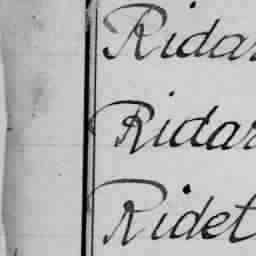 Ridar
Ridar
Ridet